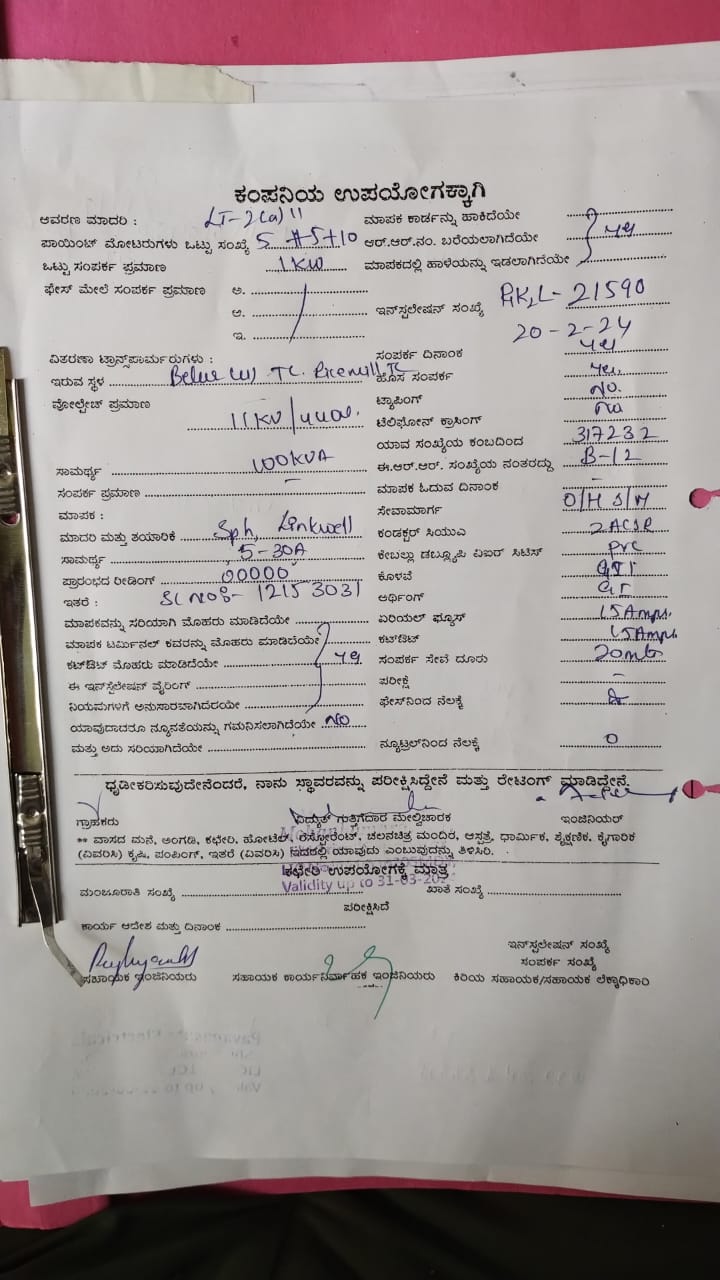 ಕಂಪನಿಯ ಉಪಯೋಗಕ್ಕಾಗಿ
ಆವರಣ ಮಾದರಿ : LT-2(a) 11 ಮಾಪಕ ಕಾರ್ಡನ್ನು ಹಾಕಿದೆಯೇ
ಪಾಯಿಂಟ್ ಮೋಟರುಗಳು ಒಟ್ಟು ಸಂಖ್ಯೆ 5 +5+10 ಆರ್.ಆರ್.ನಂ. ಬರೆಯಲಾಗಿದೆಯೇ yes
ಒಟ್ಟು ಸಂಪರ್ಕ ಪ್ರಮಾಣ 1KW ಮಾಪಕದಲ್ಲಿ ಹಾಳೆಯನ್ನು ಇಡಲಾಗಿದೆಯೇ
ಫೇಸ್ ಮೇಲೆ ಸಂಪರ್ಕ ಪ್ರಮಾಣ ಅ.
ಆ. ಇನ್‌ಸ್ಟಲೇಷನ್ ಸಂಖ್ಯೆ 21590
ಇ. 20-2-24
ವಿತರಣಾ ಟ್ರಾನ್ಸ್‌ಫಾರ್ಮರುಗಳು : ಸಂಪರ್ಕ ದಿನಾಂಕ yes
ಇರುವ ಸ್ಥಳ TC. Ricemill TC ಹೊಸ ಸಂಪರ್ಕ yes.
ವೋಲ್ಟೇಜ್ ಪ್ರಮಾಣ 11KV/440v. ಟ್ಯಾಪಿಂಗ್ No.
ಟೆಲಿಫೋನ್ ಕ್ರಾಸಿಂಗ್ no
ಯಾವ ಸಂಖ್ಯೆಯ ಕಂಬದಿಂದ 317232
ಸಾಮರ್ಥ್ಯ 100KVA ಈ.ಆರ್.ಆರ್. ಸಂಖ್ಯೆಯ ನಂತರದ್ದು B-12
ಸಂಪರ್ಕ ಪ್ರಮಾಣ - ಮಾಪಕ ಓದುವ ದಿನಾಂಕ -
ಮಾಪಕ : ಸೇವಾಮಾರ್ಗ O/H S/M
ಮಾದರಿ ಮತ್ತು ತಯಾರಿಕೆ Sph, Linkwell ಕಂಡಕ್ಟರ್ ಸಿಯುಎ 2 ACSR
ಸಾಮರ್ಥ್ಯ 5-30A ಕೇಬಲ್ಲು ಡಬ್ಲ್ಯೂಪಿ ಏಐರ್ ಸಿಟಿಸ್ PVC
ಪ್ರಾರಂಭದ ರೀಡಿಂಗ್ 00000 ಕೊಳವೆ GI
ಇತರೆ : Sl no:- 12153031 ಅರ್ಥಿಂಗ್ GI
ಮಾಪಕವನ್ನು ಸರಿಯಾಗಿ ಮೊಹರು ಮಾಡಿದೆಯೇ ಏರಿಯಲ್ ಫ್ಯೂಸ್ 15Amps.
ಮಾಪಕ ಟರ್ಮಿನಲ್ ಕವರನ್ನು ಮೊಹರು ಮಾಡಿದೆಯೇ ಕಟ್‌ಔಟ್ 15Amps.
ಕಟ್‌ಔಟ್ ಮೊಹರು ಮಾಡಿದೆಯೇ yes ಸಂಪರ್ಕ ಸೇವೆ ದೂರು 20mts
ಈ ಇನ್‌ಸ್ಟಲೇಷನ್ ವೈರಿಂಗ್ ಪರೀಕ್ಷೆ -
ನಿಯಮಗಳಿಗೆ ಅನುಸಾರವಾಗಿದೆಯೇ ಫೇಸ್‌ನಿಂದ ನೆಲಕ್ಕೆ
ಯಾವುದಾದರೂ ನ್ಯೂನತೆಯನ್ನು ಗಮನಿಸಲಾಗಿದೆಯೇ NO
ಮತ್ತು ಅದು ಸರಿಯಾಗಿದೆಯೇ ನ್ಯೂಟ್ರಲ್‌ನಿಂದ ನೆಲಕ್ಕೆ 0
ಧೃಡೀಕರಿಸುವುದೇನೆಂದರೆ, ನಾನು ಸ್ಥಾವರವನ್ನು ಪರೀಕ್ಷಿಸಿದ್ದೇನೆ ಮತ್ತು ರೇಟಿಂಗ್ ಮಾಡಿದ್ದೇನೆ.
ಗ್ರಾಹಕರು ವಿದ್ಯುತ್ ಗುತ್ತಿಗೆದಾರ ಮೇಲ್ವಿಚಾರಕ ಇಂಜಿನಿಯರ್
** ವಾಸದ ಮನೆ, ಅಂಗಡಿ, ಕಛೇರಿ, ಹೋಟೆಲ್, ರೆಸ್ಟೋರೆಂಟ್, ಚಲನಚಿತ್ರ ಮಂದಿರ, ಆಸ್ಪತ್ರೆ, ಧಾರ್ಮಿಕ, ಶೈಕ್ಷಣಿಕ, ಕೈಗಾರಿಕೆ
(ವಿವರಿಸಿ) ಕೃಷಿ, ಪಂಪಿಂಗ್, ಇತರೆ (ವಿವರಿಸಿ) ಇದರಲ್ಲಿ ಯಾವುದು ಎಂಬುವುದನ್ನು ತಿಳಿಸಿರಿ.
ಕಛೇರಿ ಉಪಯೋಗಕ್ಕೆ ಮಾತ್ರ
Validity up to 31-03-202
ಮಂಜೂರಾತಿ ಸಂಖ್ಯೆ ಖಾತೆ ಸಂಖ್ಯೆ
ಪರೀಕ್ಷಿಸಿದೆ
ಕಾರ್ಯ ಆದೇಶ ಮತ್ತು ದಿನಾಂಕ
ಇನ್‌ಸ್ಟಲೇಷನ್ ಸಂಖ್ಯೆ
ಸಂಪರ್ಕ ಸಂಖ್ಯೆ
ಸಹಾಯಕ ಇಂಜಿನಿಯರು ಸಹಾಯಕ ಕಾರ್ಯನಿರ್ವಾಹಕ ಇಂಜಿನಿಯರು ಕಿರಿಯ ಸಹಾಯಕ/ಸಹಾಯಕ ಲೆಕ್ಕಾಧಿಕಾರಿ